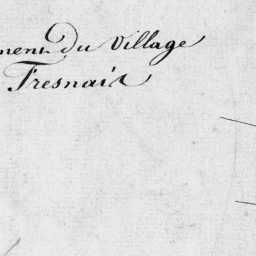 ment Du Village
Fresnais